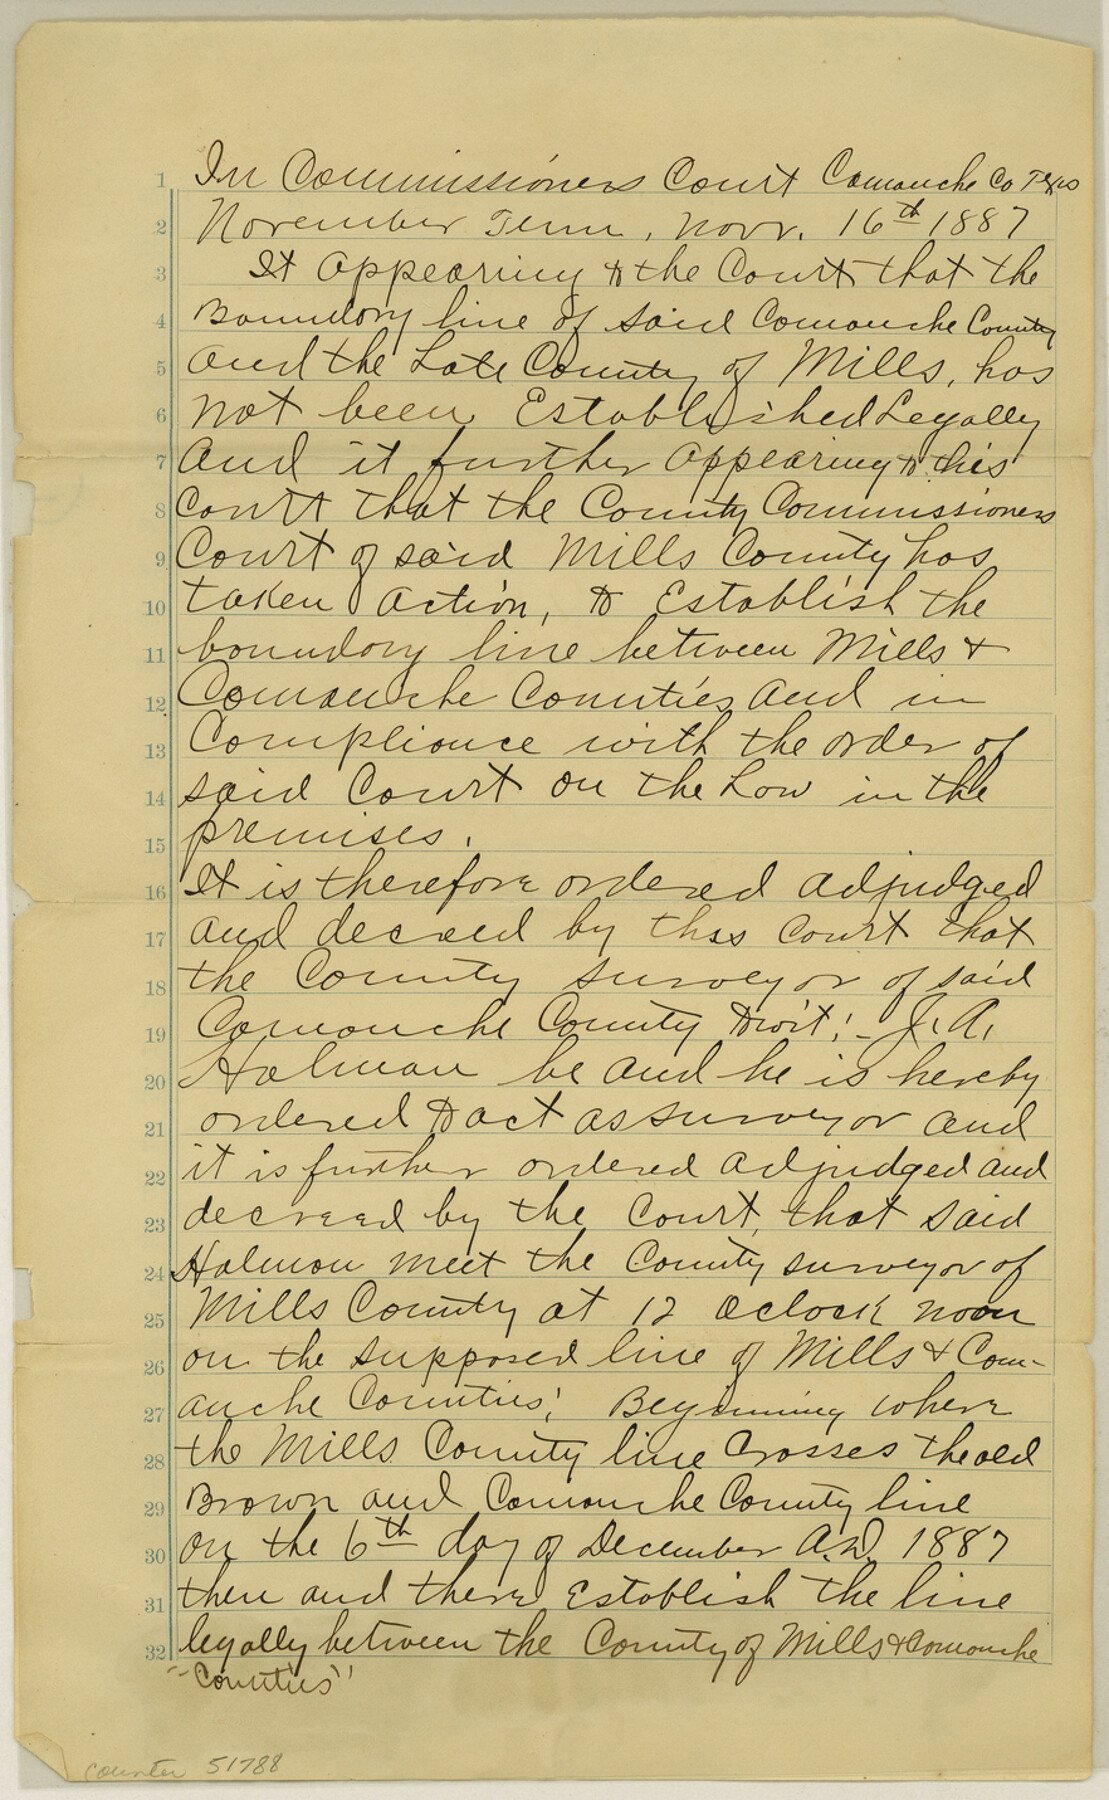 1 In Commissioners Court Comanche Co Texas
2 November Term, Novr. 16th 1887
3 It Appearing to the Court that the
4 Boundory line of said Comanche County
5 and the Late County of Mills, has
6 not been Established Legally
7 And it further appearing to this
8 Court that the County Commissioners
9 Court of said Mills County has
10 taken action, to Establish the
11 boundory line between Mills &
12 Comanche Counties and in
13 Compliance with the order of
14 said Court on the Low in the
15 premises.
16 It is therefore ordered adjudged
17 and decreed by this Court that
18 the County surveyor of said
19 Comanche County towit:- J. A.
20 Holman be and he is hereby
21 ordered to act as surveyor and
22 it is further ordered adjudged and
23 decreed by the Court, that said
24 Holmon meet the County surveyor of
25 Mills County at 12 oclock noon
26 on the supposed line of Mills & Com-
27 anche Counties; Beginning where
28 the Mills County line Crosses the old
29 Brown and Comanche County line
30 on the 6th day of December A.D. 1887
31 then and there Establish the line
32 legally between the County of Mills & Comanche
"Counties"
counter 51788